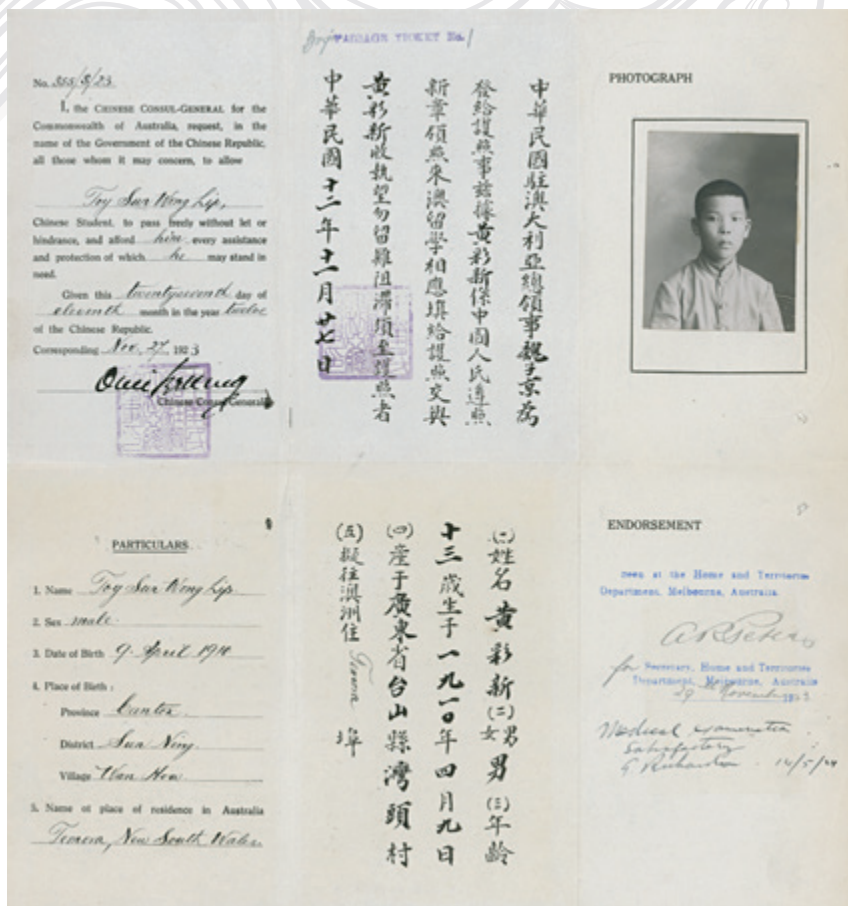 PASSAGE TICKET No.
No. 355/S/23
I, the CHINESE CONSUL-GENERAL for the
Commonwealth of Australia, request, in the
name of the Government of the Chinese Republic,
all those whom it may concern, to allow
Toy Sun Wong Lip,
Chinese Student, to pass freely without let or
hindrance, and afford him every assistance
and protection of which he may stand in
need.
Given this twentyseventh day of
eleventh month in the year twelve
of the Chinese Republic.
Corresponding Nov. 27, 1923
Chinese Consul-General
中華民國駐澳大利亞總領事魏子京為
發給護照事茲據黃彩新係中國人民遵照
新章領照來澳留學相應填給護照交與
黃彩新收執望勿留難阻滯須至護照者
中華民國十二年十一月廿七日
PHOTOGRAPH
PARTICULARS
1. Name Toy Sun Wong Lip
2. Sex male
3. Date of Birth 9. April 1910
4. Place of Birth:
Province Canton
District Sun Ning
Village Wan How
5. Name of place of residence in Australia
Temora, New South Wales
(一)姓名黃彩新(二)男女男(三)年齡
十三歲生于一九一〇年四月九日
(四)產于廣東省台山縣灣頭村
(五)擬往澳洲住Temora埠
ENDORSEMENT
Seen at the Home and Territories
Department, Melbourne, Australia.
for Secretary, Home and Territories
Department, Melbourne, Australia
29th November 1923
Medical examination
Satisfactory
G. Richardson 14/5/24